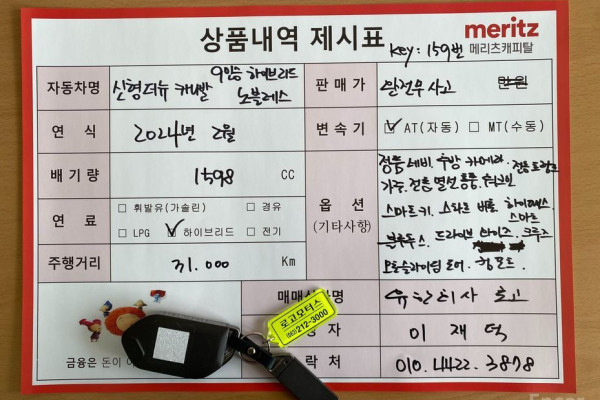 상품내역 제시표
meritz
메리츠캐피탈
key : 159번
자동차명
신형더뉴 카니발
9인승 하이브리드
노블레스
판매가
완전무사고
만원
연 식
2024년 2월
변속기
AT(자동) MT(수동)
배기량
1598 CC
연 료
휘발유(가솔린) 경유
LPG 하이브리드 전기
주행거리
31.000 Km
옵 션
(기타사항)
정품 네비. 후방 카메라. 전동 트렁크
가죽. 전동 열선 통풍
스마트키. 스타트 버튼. 하이패스.
스마트
드라이브 와이즈. 크루즈
오토슬라이딩 도어. 핸포드.
매매
명
유한회사 로고
자
이 재덕
락처
010.4422.3878
로고모터스
212-3000
금융은 돈이
Encar